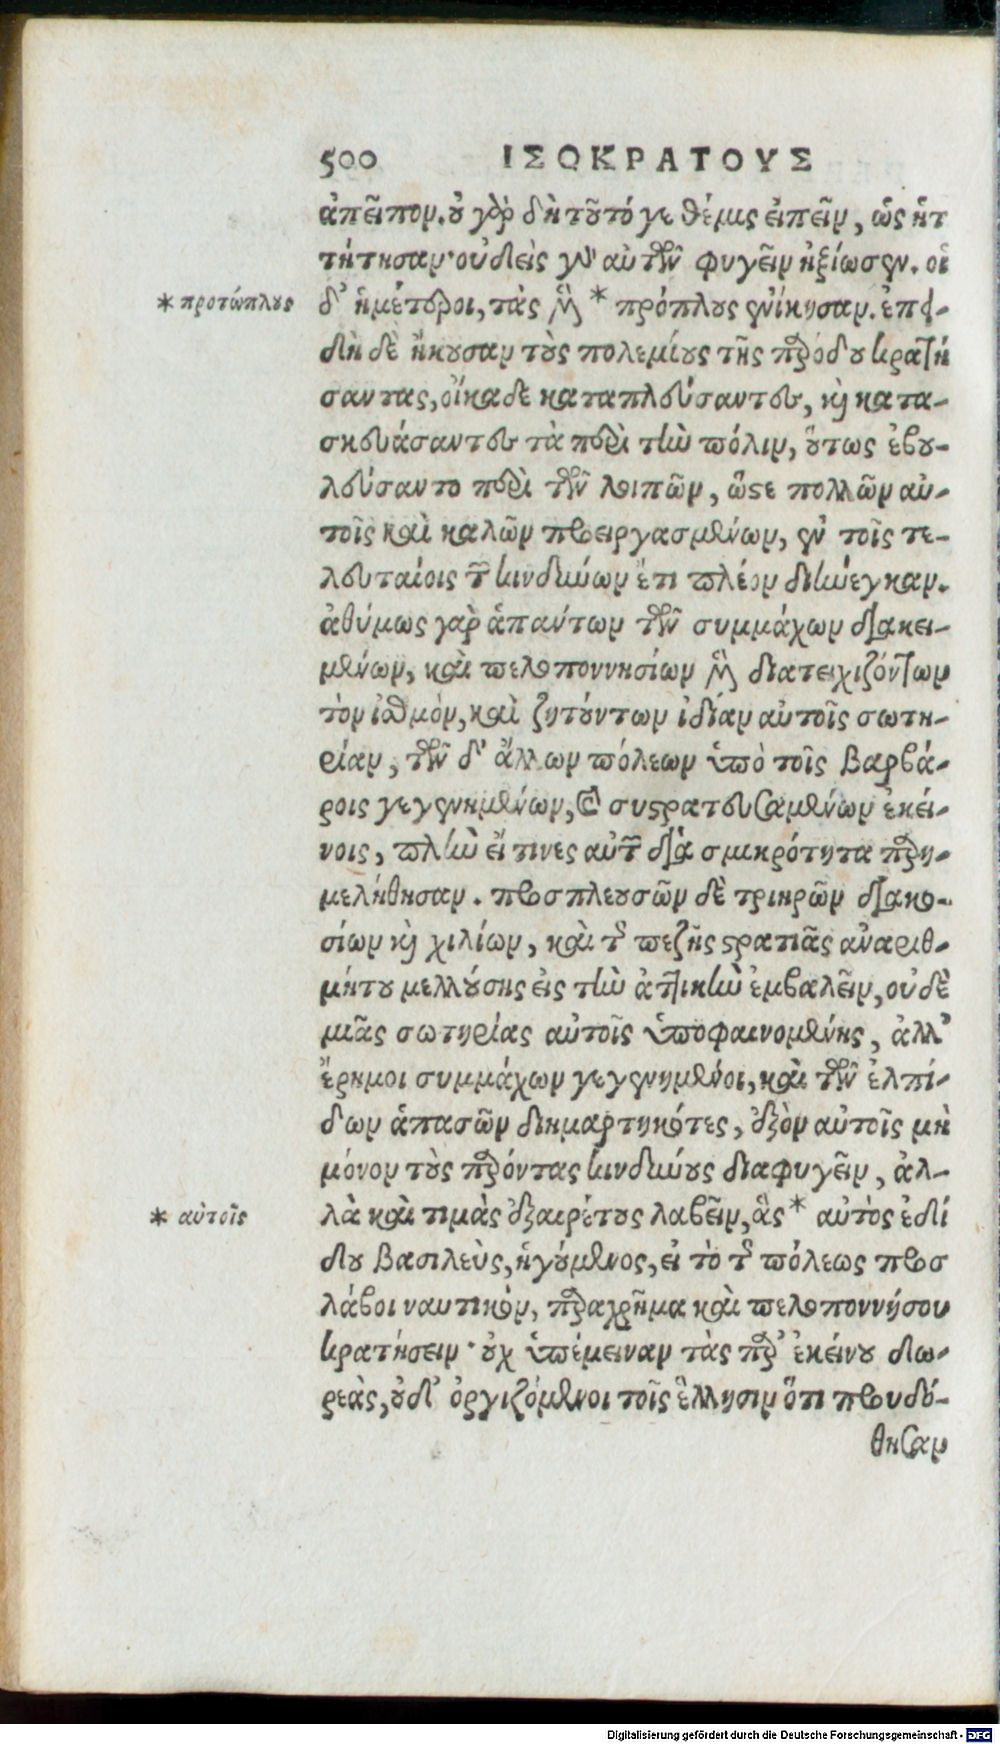 500 ΙΣΟΚΡΑΤΟΥΣ
ἀπεῖπον. οὐ γὰρ δὴ τοῦτό γε θέμις εἰπεῖν, ὡς ἡτ
τήτησαν· οὐδεὶς γὰρ αὐτῶν φυγεῖν ἠξίωσεν. οἱ
* προτώπλους
δ' ἡμέτεροι, τὰς μὲν * πρόπλους ἐνίκησαν. ἐπει-
δὴ δὲ ἤκουσαν τοὺς πολεμίους τῆς παρόδου κρατή
σαντας, οἴκαδε καταπλεύσαντες, καὶ κατα-
σκευάσαντες τὰ περὶ τὴν πόλιν, οὕτως ἐβου-
λεύσαντο περὶ τῶν λοιπῶν, ὥστε πολλῶν αὐ-
τοῖς καὶ καλῶν προειργασμένων, ἐν τοῖς τε-
λευταίοις τῶν κινδύνων ἔτι πλέον διήνεγκαν.
ἀθύμως γὰρ ἁπάντων τῶν συμμάχων διακει-
μένων, καὶ πελοποννησίων μὲν διατειχιζόντων
τὸν ἰσθμὸν, καὶ ζητούντων ἰδίαν αὑτοῖς σωτη-
ρίαν, τῶν δ' ἄλλων πόλεων ὑπὸ τοῖς βαρβά-
ροις γεγενημένων, καὶ συστρατευσαμένων ἐκεί-
νοις, πλὴν εἴ τινες αὐτῶν διὰ σμικρότητα παρη-
μελήθησαν. προσπλευσῶν δὲ τριηρῶν διακο-
σίων καὶ χιλίων, καὶ τῆς πεζῆς στρατιᾶς ἀναριθ-
μήτου μελλούσης εἰς τὴν ἀττικὴν ἐμβαλεῖν, οὐδὲ
μιᾶς σωτηρίας αὐτοῖς ὑποφαινομένης, ἀλλ'
ἔρημοι συμμάχων γεγενημένοι, καὶ τῶν ἐλπί-
δων ἁπασῶν διημαρτηκότες, ἐξὸν αὐτοῖς μὴ
μόνον τοὺς παρόντας κινδύνους διαφυγεῖν, ἀλ-
* αὐτοῖς
λὰ καὶ τιμὰς ἐξαιρέτους λαβεῖν, ἃς * αὐτὸς ἐδί
δου βασιλεὺς, ἡγούμενος, εἰ τὸ τῆς πόλεως προσ
λάβοι ναυτικὸν, παραχρῆμα καὶ πελοποννήσου
κρατήσειν· οὐχ ὑπέμειναν τὰς παρ' ἐκείνου δω-
ρεὰς, οὐδ' ὀργιζόμενοι τοῖς ἕλλησιν ὅτι προυδό-
θησαν
Digitalisierung gefördert durch die Deutsche Forschungsgemeinschaft - DFG